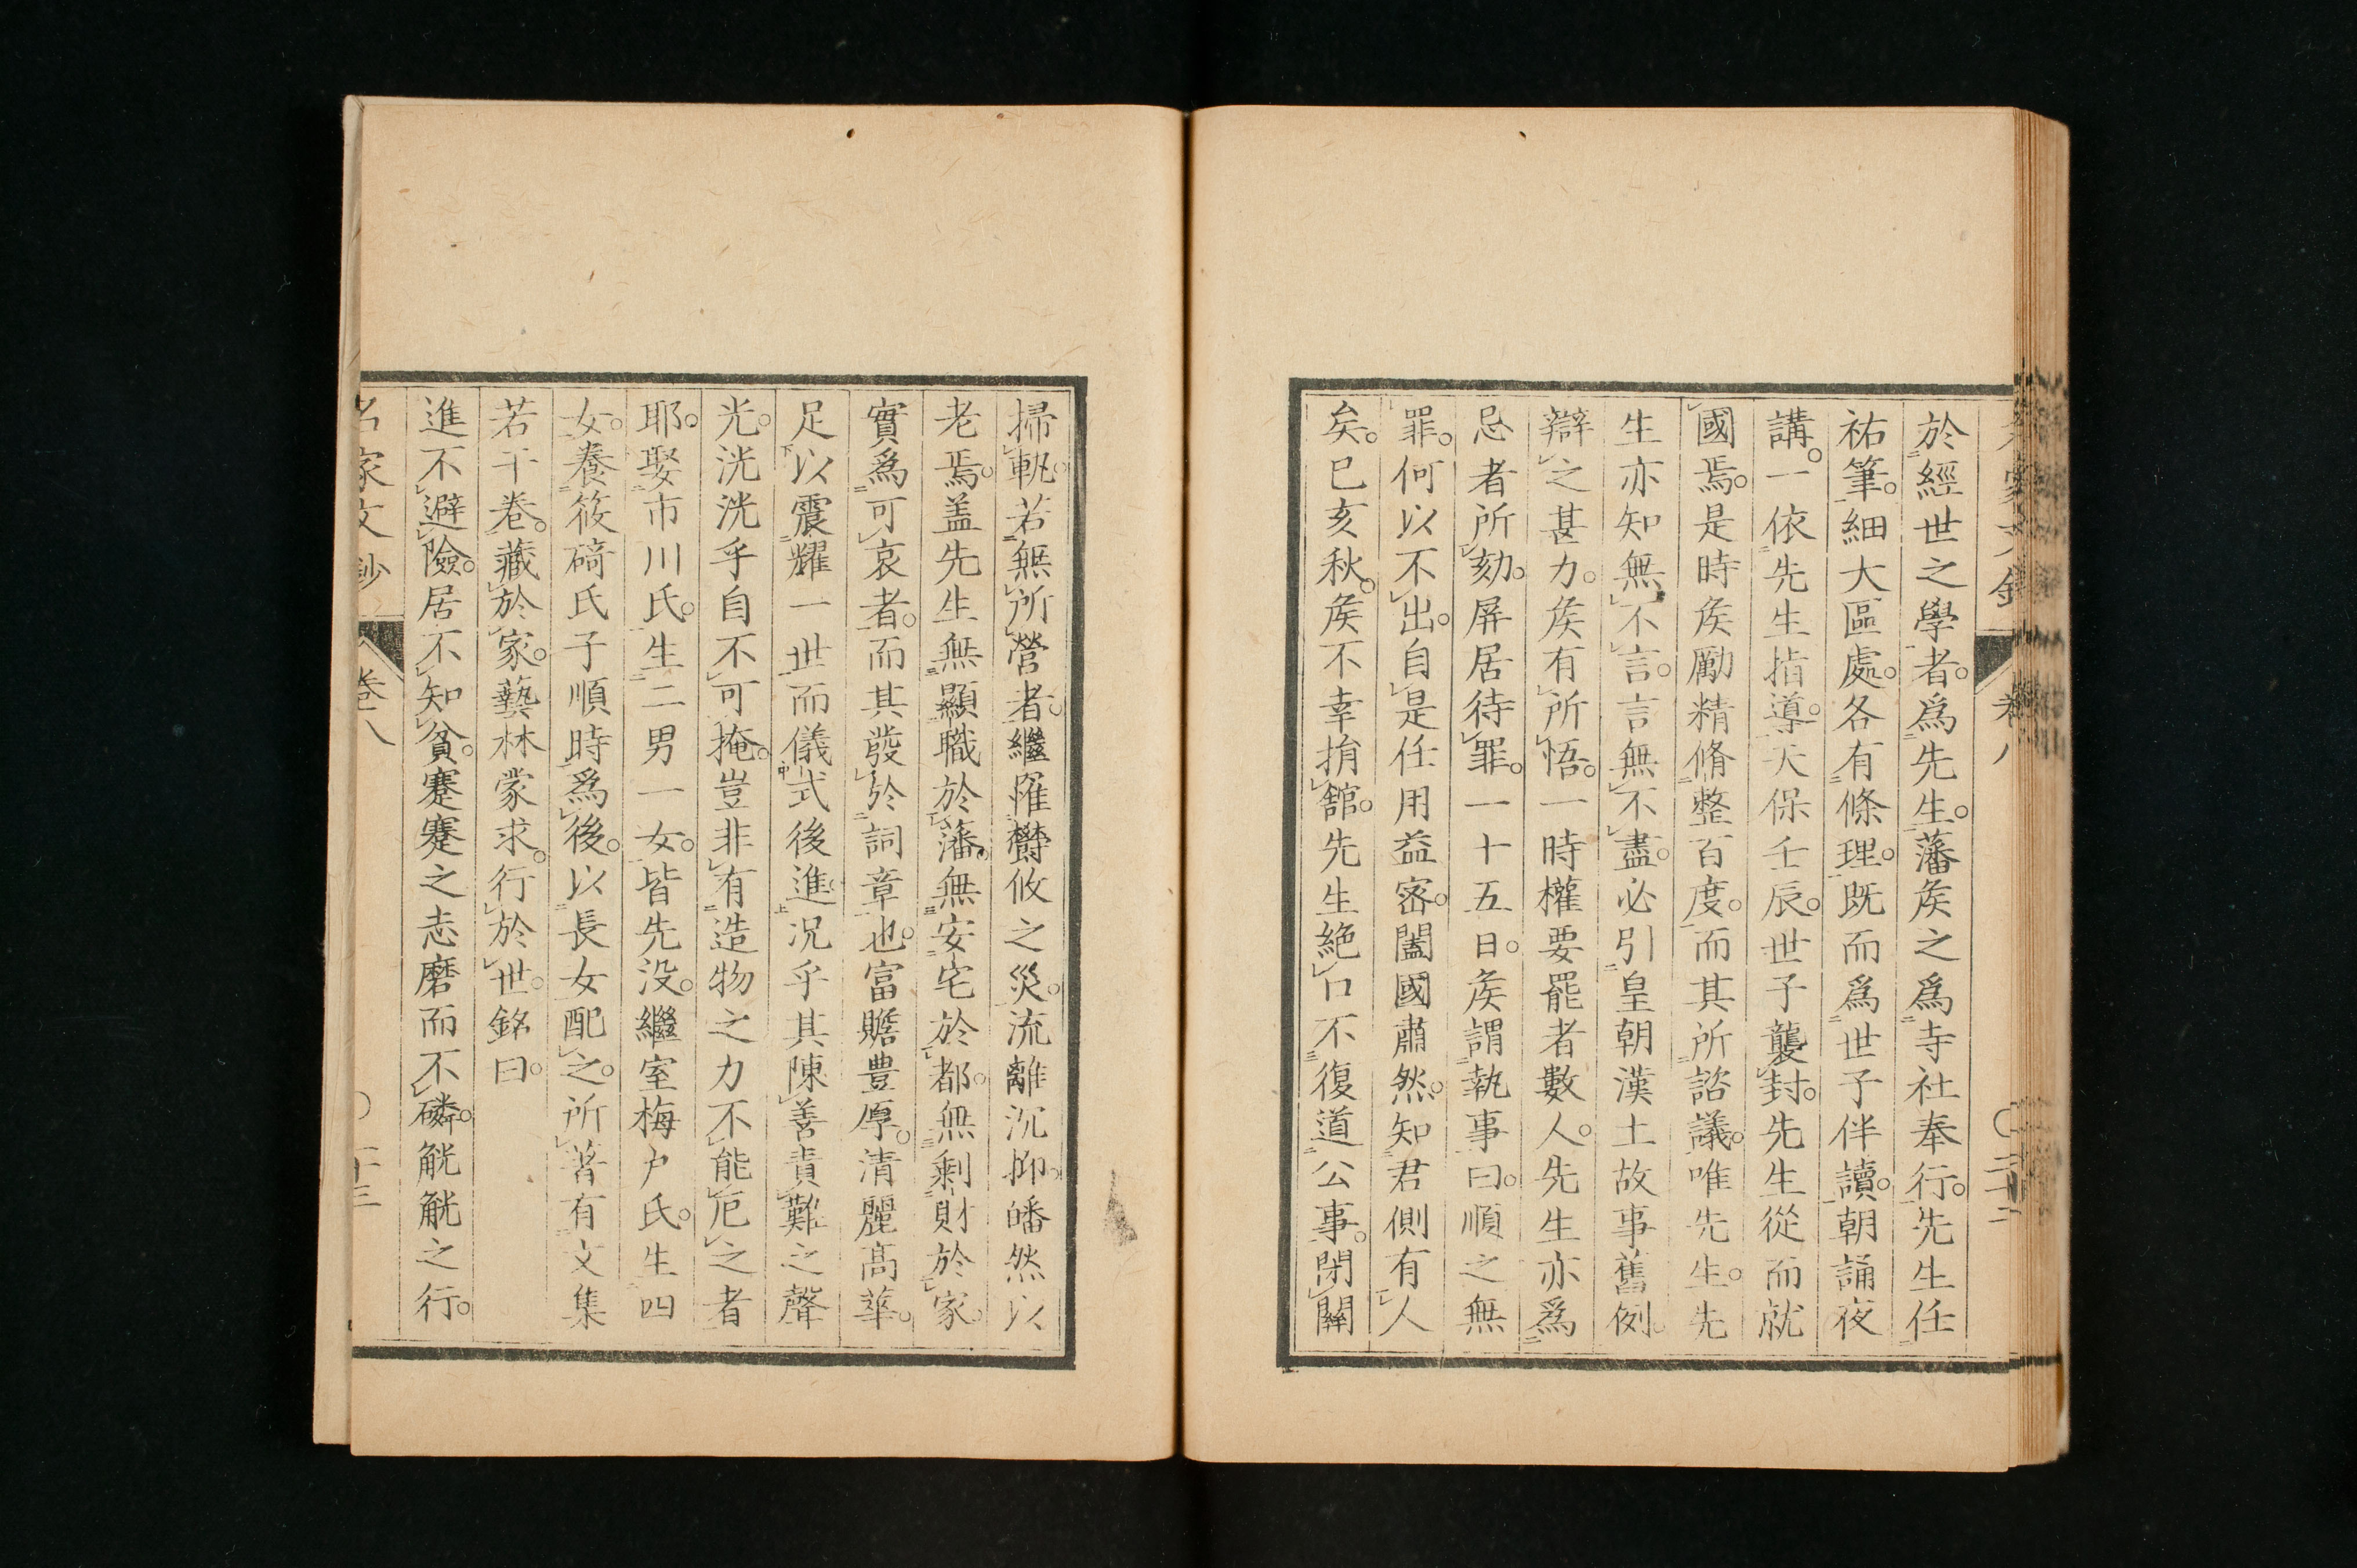 於經世之學者。爲先生。藩矦之爲寺社奉行。先生任
祐筆。細大區處。各有條理。既而爲世子伴讀。朝誦夜
講。一依先生指導。天保壬辰。世子襲封。先生從而就
國焉。是時矦勵精脩整百度。而其所諮議。唯先生。先
生亦知無不言。言無不盡。必引皇朝漢土故事舊例。
辯之甚力。矦有所悟。一時權要罷者數人。先生亦爲
忌者所劾。屏居待罪。一十五日。矦謂執事曰。順之無
罪。何以不出。自是任用益密。闔國肅然。知君側有人
矣。已亥秋。矦不幸捐舘。先生絶口不復道公事。閉關
掃軌。若無所營者。繼罹欝攸之災。流離沉抑。皤然以
老焉。盖先生無顯職於藩。無安宅於都。無剩財於家。
實爲可哀者。而其發於詞章也。富贍豊厚。清麗高華。
足以震耀一世而儀式後進。况乎其陳善責難之聲
光。洸洸乎自不可掩。豈非有造物之力不能厄之者
耶。娶市川氏。生二男一女。皆先没。繼室梅户氏。生四
女。養筱碕氏子順時爲後。以長女配之。所著有文集
若干卷。藏於家。藝林蒙求。行於世。銘曰。
進不避險。居不知貧。蹇蹇之志磨而不磷。觥觥之行。
名家文鈔 卷八